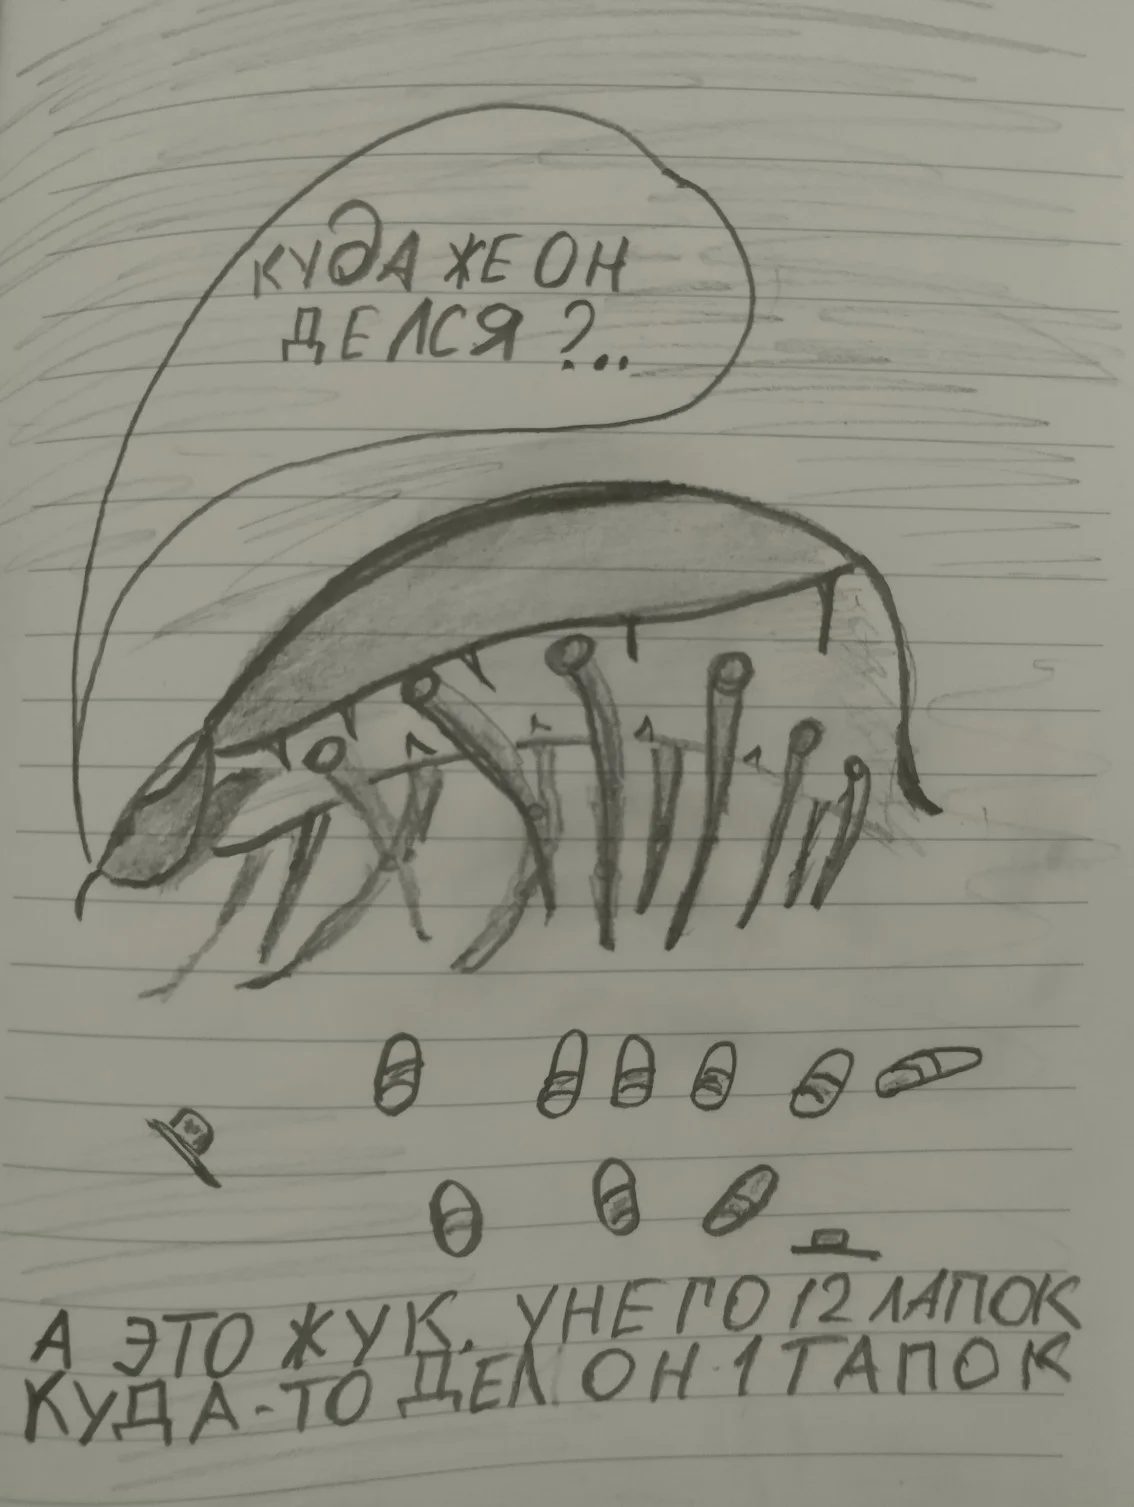 КУДА ЖЕ ОН
ДЕЛСЯ?..
А ЭТО ЖУК. У НЕГО 12 ЛАПОК
КУДА-ТО ДЕЛ ОН 1 ТАПОК